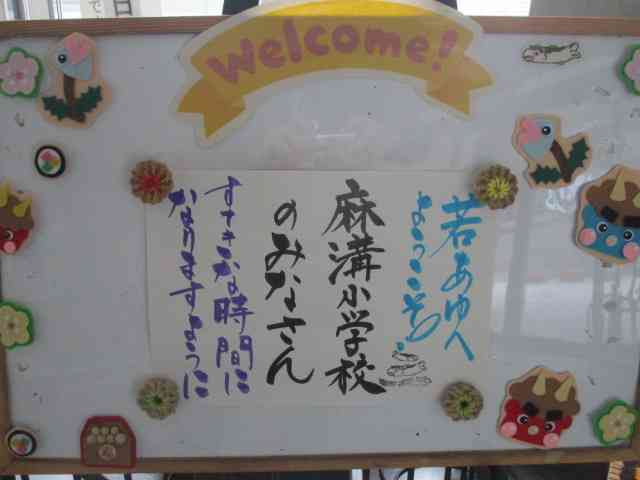 Welcome!
若あゆへ
ようこそ!
麻溝小学校
のみなさん
すてきな時間に
なりますように